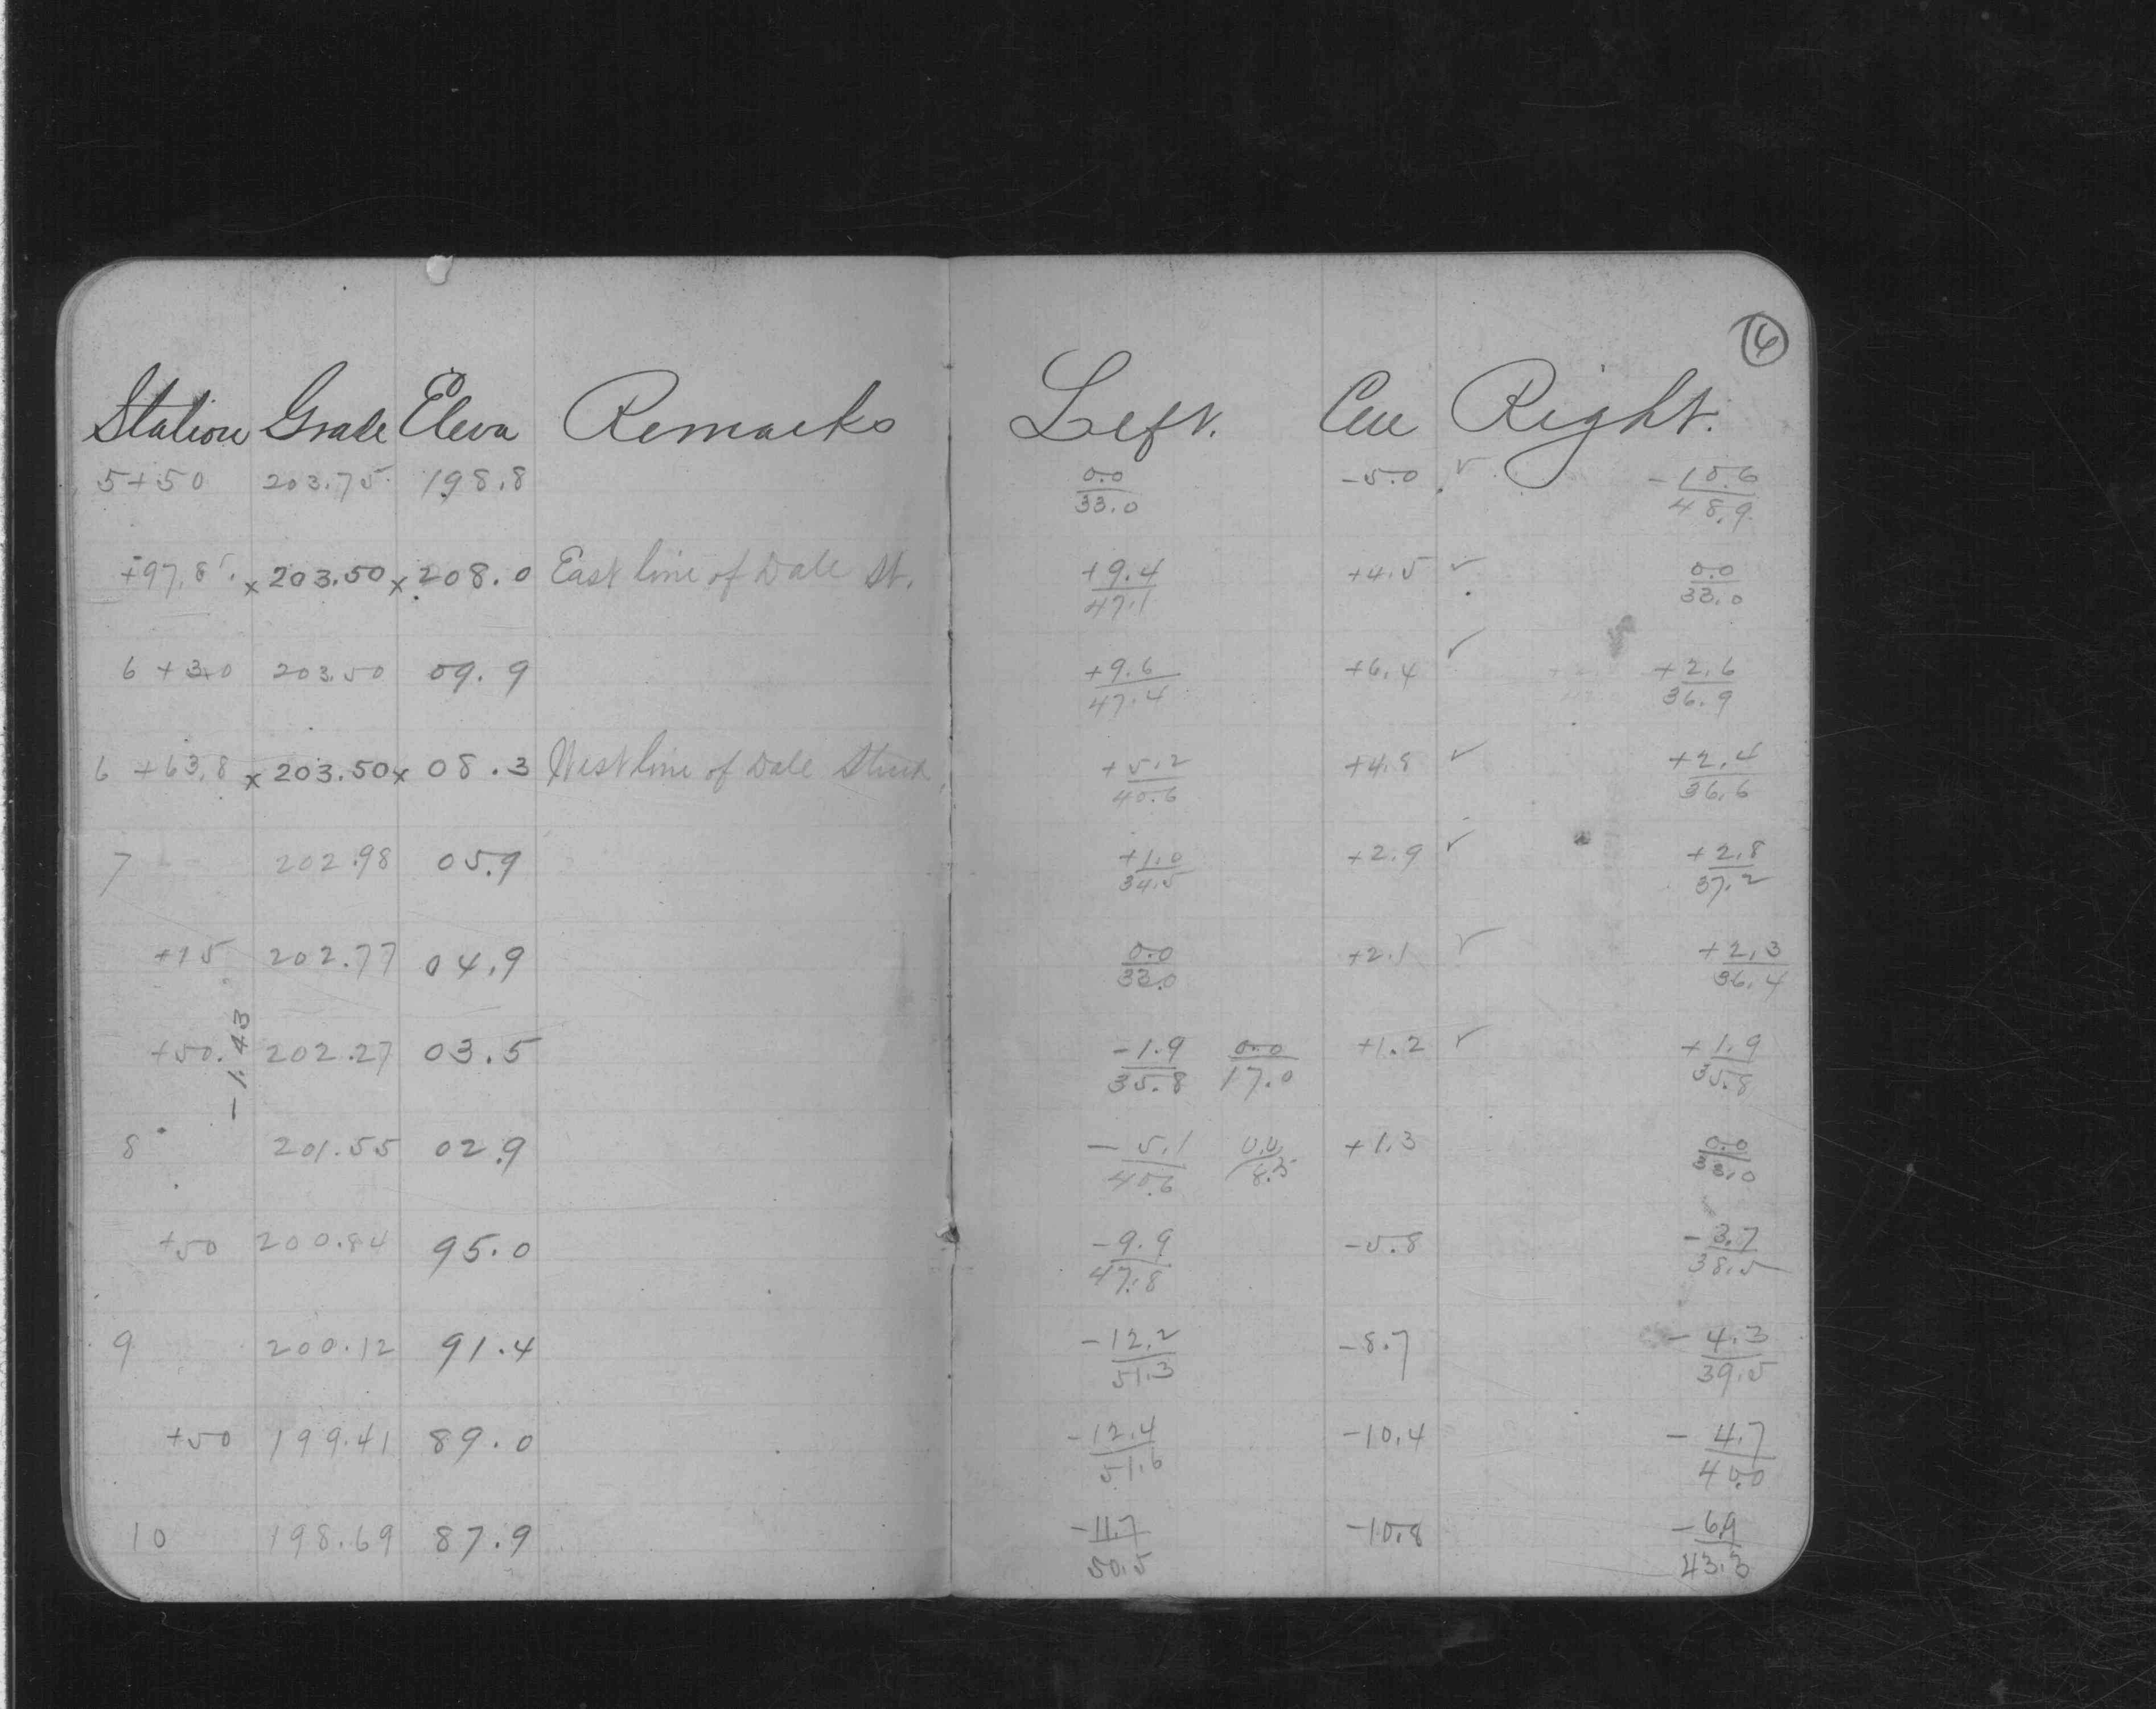 6
Station Grade Eleva Remarks Left. Cen Right.
5+50 203.75 198.8 0.0/33.0 -5.0 ✓ -10.6/48.9
+97.8 x 203.50 x 208.0 East line of Dale St. +9.4/47.1 +4.5 ✓ 0.0/33.0
6 +30 203.50 09.9 +9.6/47.4 +6.4 ✓ +2.6/36.9
6 +63.8 x 203.50 x 08.3 West line of Dale Street +5.2/40.6 +4.8 ✓ +2.4/36.6
7 202.98 05.9 +1.0/34.5 +2.9 ✓ +2.8/37.2
+15 202.77 04.9 0.0/33.0 +2.1 ✓ +2.3/36.4
+50. 202.27 03.5 -1.9/35.8 0.0/17.0 +1.2 ✓ +1.9/35.8
-1.43
8 201.55 02.9 -5.1/40.6 0.0/8.3 +1.3 0.0/33.0
+50 200.84 95.0 -9.9/47.8 -5.8 -3.7/38.5
9 200.12 91.4 -12.2/51.3 -8.7 -4.3/39.5
+50 199.41 89.0 -12.4/51.6 -10.4 -4.7/40.0
10 198.69 87.9 -11.7/50.5 -10.8 -6.9/43.3